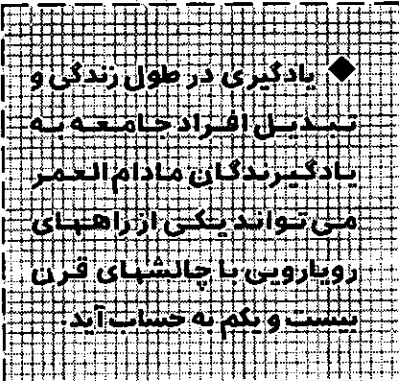 ◆ یادگیری در طول زندگی و
تبدیل افراد جامعه به
یادگیرندگان مادام العمر
می تواند یکی از راههای
رویارویی با چالشهای قرن
بیست و یکم به حساب آید.